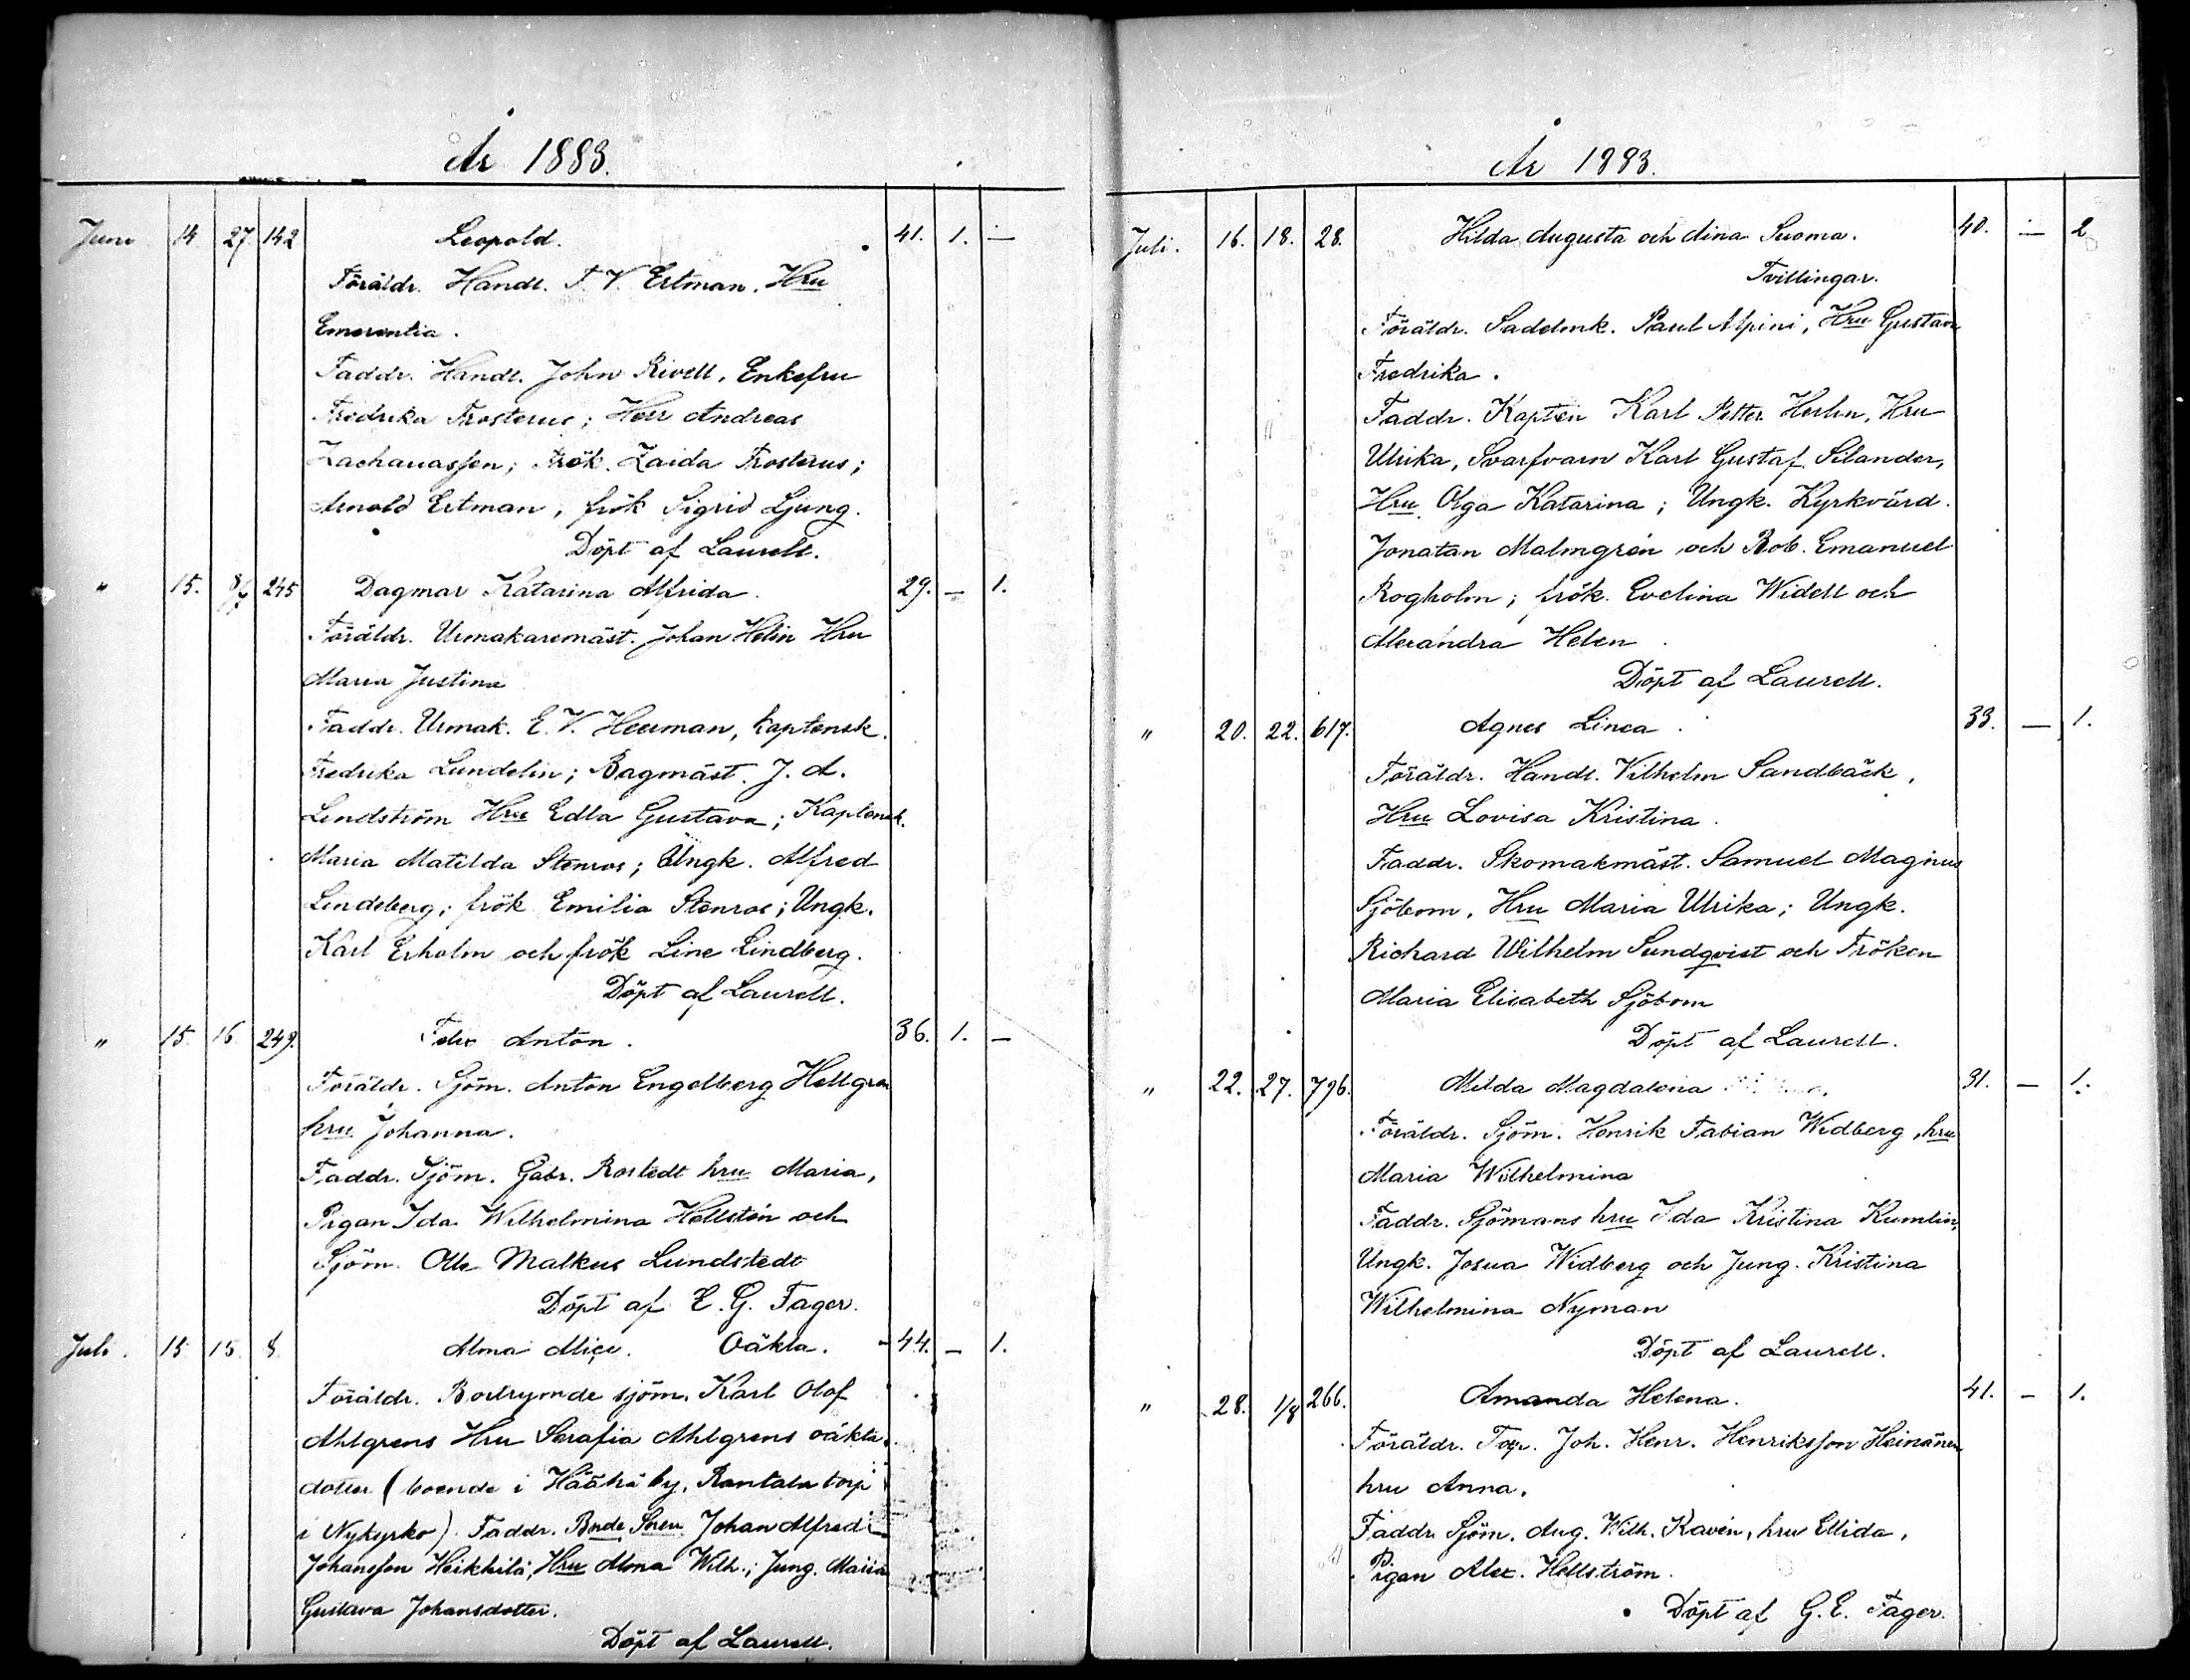 År 1883.
Juni 14 27 142 Leopold. 41. 1. —
Föräldr. Handl. F. V. Ertman, Hru
Emerentia.
Faddr. Handl. John Rivell, Enkefru
Fredrika Frosterus; Herr Andreas
Zachariassen; Frök. Zaida Frosterus;
Arnold Ertman, frök Sigrid Ljung.
Döpt af Laurell.
" 15. 8/7 245 Dagmar Katarina Alfrida. 29. — 1.
Föräldr. Urmakaremäst. Johan Helin Hru
Maria Justina
Faddr. Urmak. E. V. Heerman, kaptensk.
Fredrika Lundelin; Bagmäst. J. A.
Lindström Hru Edla Gustava; Kaptensk.
Maria Matilda Stenros; Ungk. Alfred
Lindeberg; frök Emilia Stenros; Ungk.
Karl Erholm och frök Line Lindberg.
Döpt af Laurell.
" 15. 16. 249. Felix Anton. 36. 1. —
Föräldr. Sjöm. Anton Engelberg Hellgren
hru Johanna.
Faddr. Sjöm. Gabr. Rostedt hru Maria,
Pigan Ida Wilhelmina Hellstén och
Sjöm. Otto Malkus Lundstedt
Döpt af E. G. Fager.
Juli. 15 15 8 Alma Alice. Oäkta. 44. — 1.
Föräldr. Bortrymde sjöm. Karl Olof
Ahlgrens Hru Serafia Ahlgrens oäkta
dotter (boende i Häähä by, Rantala torp
i Nykyrko). Faddr. Bnde Sonen Johan Alfred
Johansson Heikkilä, Hru Alma Wilh.; Jung. Maria
Gustava Johansdotter.
Döpt af Laurell.
År 1883.
Juli. 16. 18. 28. Hilda Augusta och Aina Suoma. 40. — 2
Tvillingar.
Föräldr. Sadelmk. Paul Alpini, Hru Gustava
Fredrika.
Faddr. Kapten Karl Petter Herlin, Hru
Ulrika, Svarfvarn Karl Gustaf Silander,
Hru Olga Katarina; Ungk. Kyrkvärd.
Jonatan Malmgrén och Rob. Emanuel
Rogholm; frök. Evelina Widell och
Alexandra Helen
Döpt af Laurell.
" 20. 22. 617. Agnes Linea. 33. — 1.
Föräldr. Handl. Vilhelm Sandbäck,
Hru Lovisa Kristina.
Faddr. Skomakmäst. Samuel Magnus
Sjöbom, Hru Maria Ulrika; Ungk.
Richard Wilhelm Sundqvist och Fröken
Maria Elisabeth Sjöbom
Döpt af Laurell.
" 22. 27. 796. Milda Magdalena 31. — 1.
Föräldr. Sjöm. Henrik Fabian Widberg, hru
Maria Wilhelmina
Faddr. Sjömans hru Ida Kristina Kumlin,
Ungk. Josua Widberg och Jung. Kristina
Wilhelmina Nyman
Döpt af Laurell.
" 28. 1/8 266. Amanda Helena. 41. — 1.
Föräldr. Torp. Joh. Henr. Henriksson Heinänen
hru Anna.
Faddr. Sjöm. Aug. Wilh. Kavén, hru Ellida,
Pigan Alex. Hellström.
Döpt af G. E. Fager.